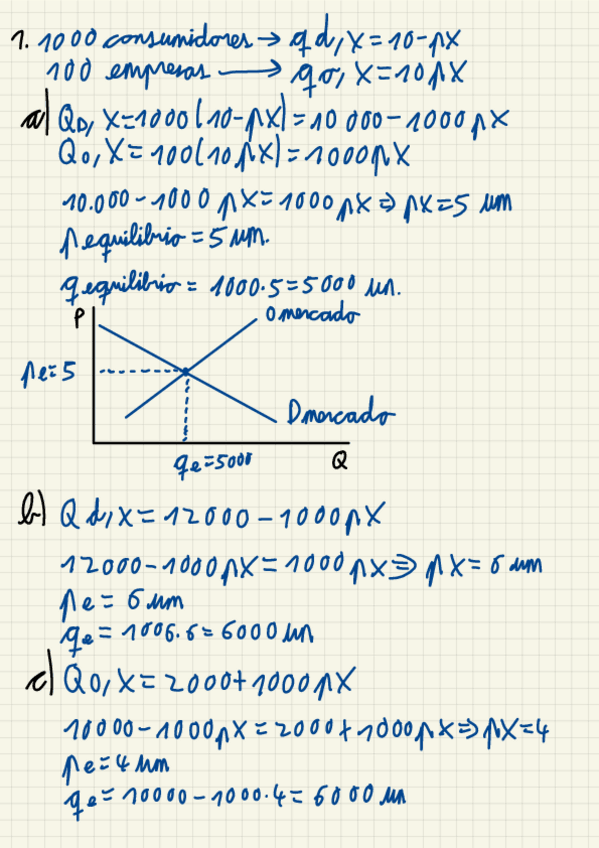 1. 1000 consumidores → qd,x = 10-px
100 empresas → qo,x = 10px
a) QD,x = 1000(10-px) = 10 000 - 1000px
Qo,x = 100(10px) = 1000px
10.000 - 1000px = 1000px ⇒ px = 5 um
p equilibrio = 5 um.
q equilibrio = 1000.5 = 5000 un.
P
O mercado
pe=5
D mercado
qe=5000
Q
b) Qd,x = 12000 - 1000px
12000 - 1000px = 1000px ⇒ px = 6 um
pe = 6 um
qe = 1000.6 = 6000 un
c) Qo,x = 2000 + 1000px
10000 - 1000px = 2000 + 1000px ⇒ px = 4
pe = 4 um
qe = 10000 - 1000.4 = 6000 un